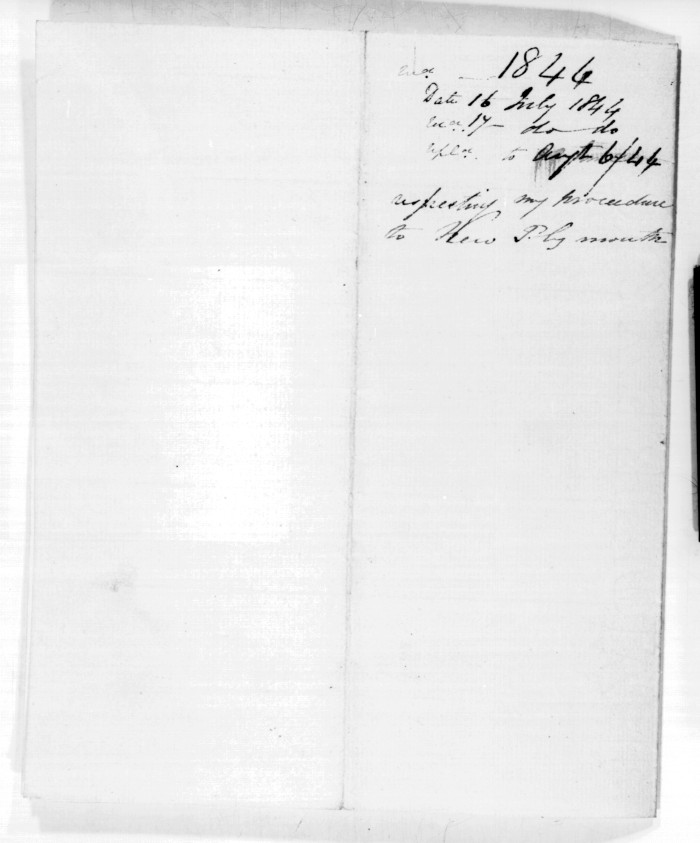 1844
Date 16 July 1844
17 - do - do
to Augt 6/44
respecting my procedure
to New Plymouth